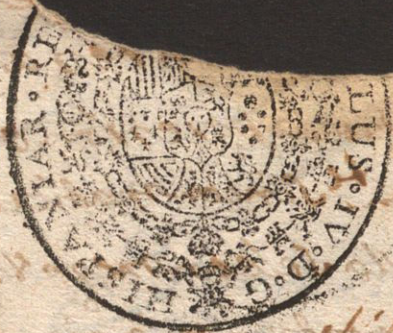 LUS·IV·D·G·HISPANIAR·RE